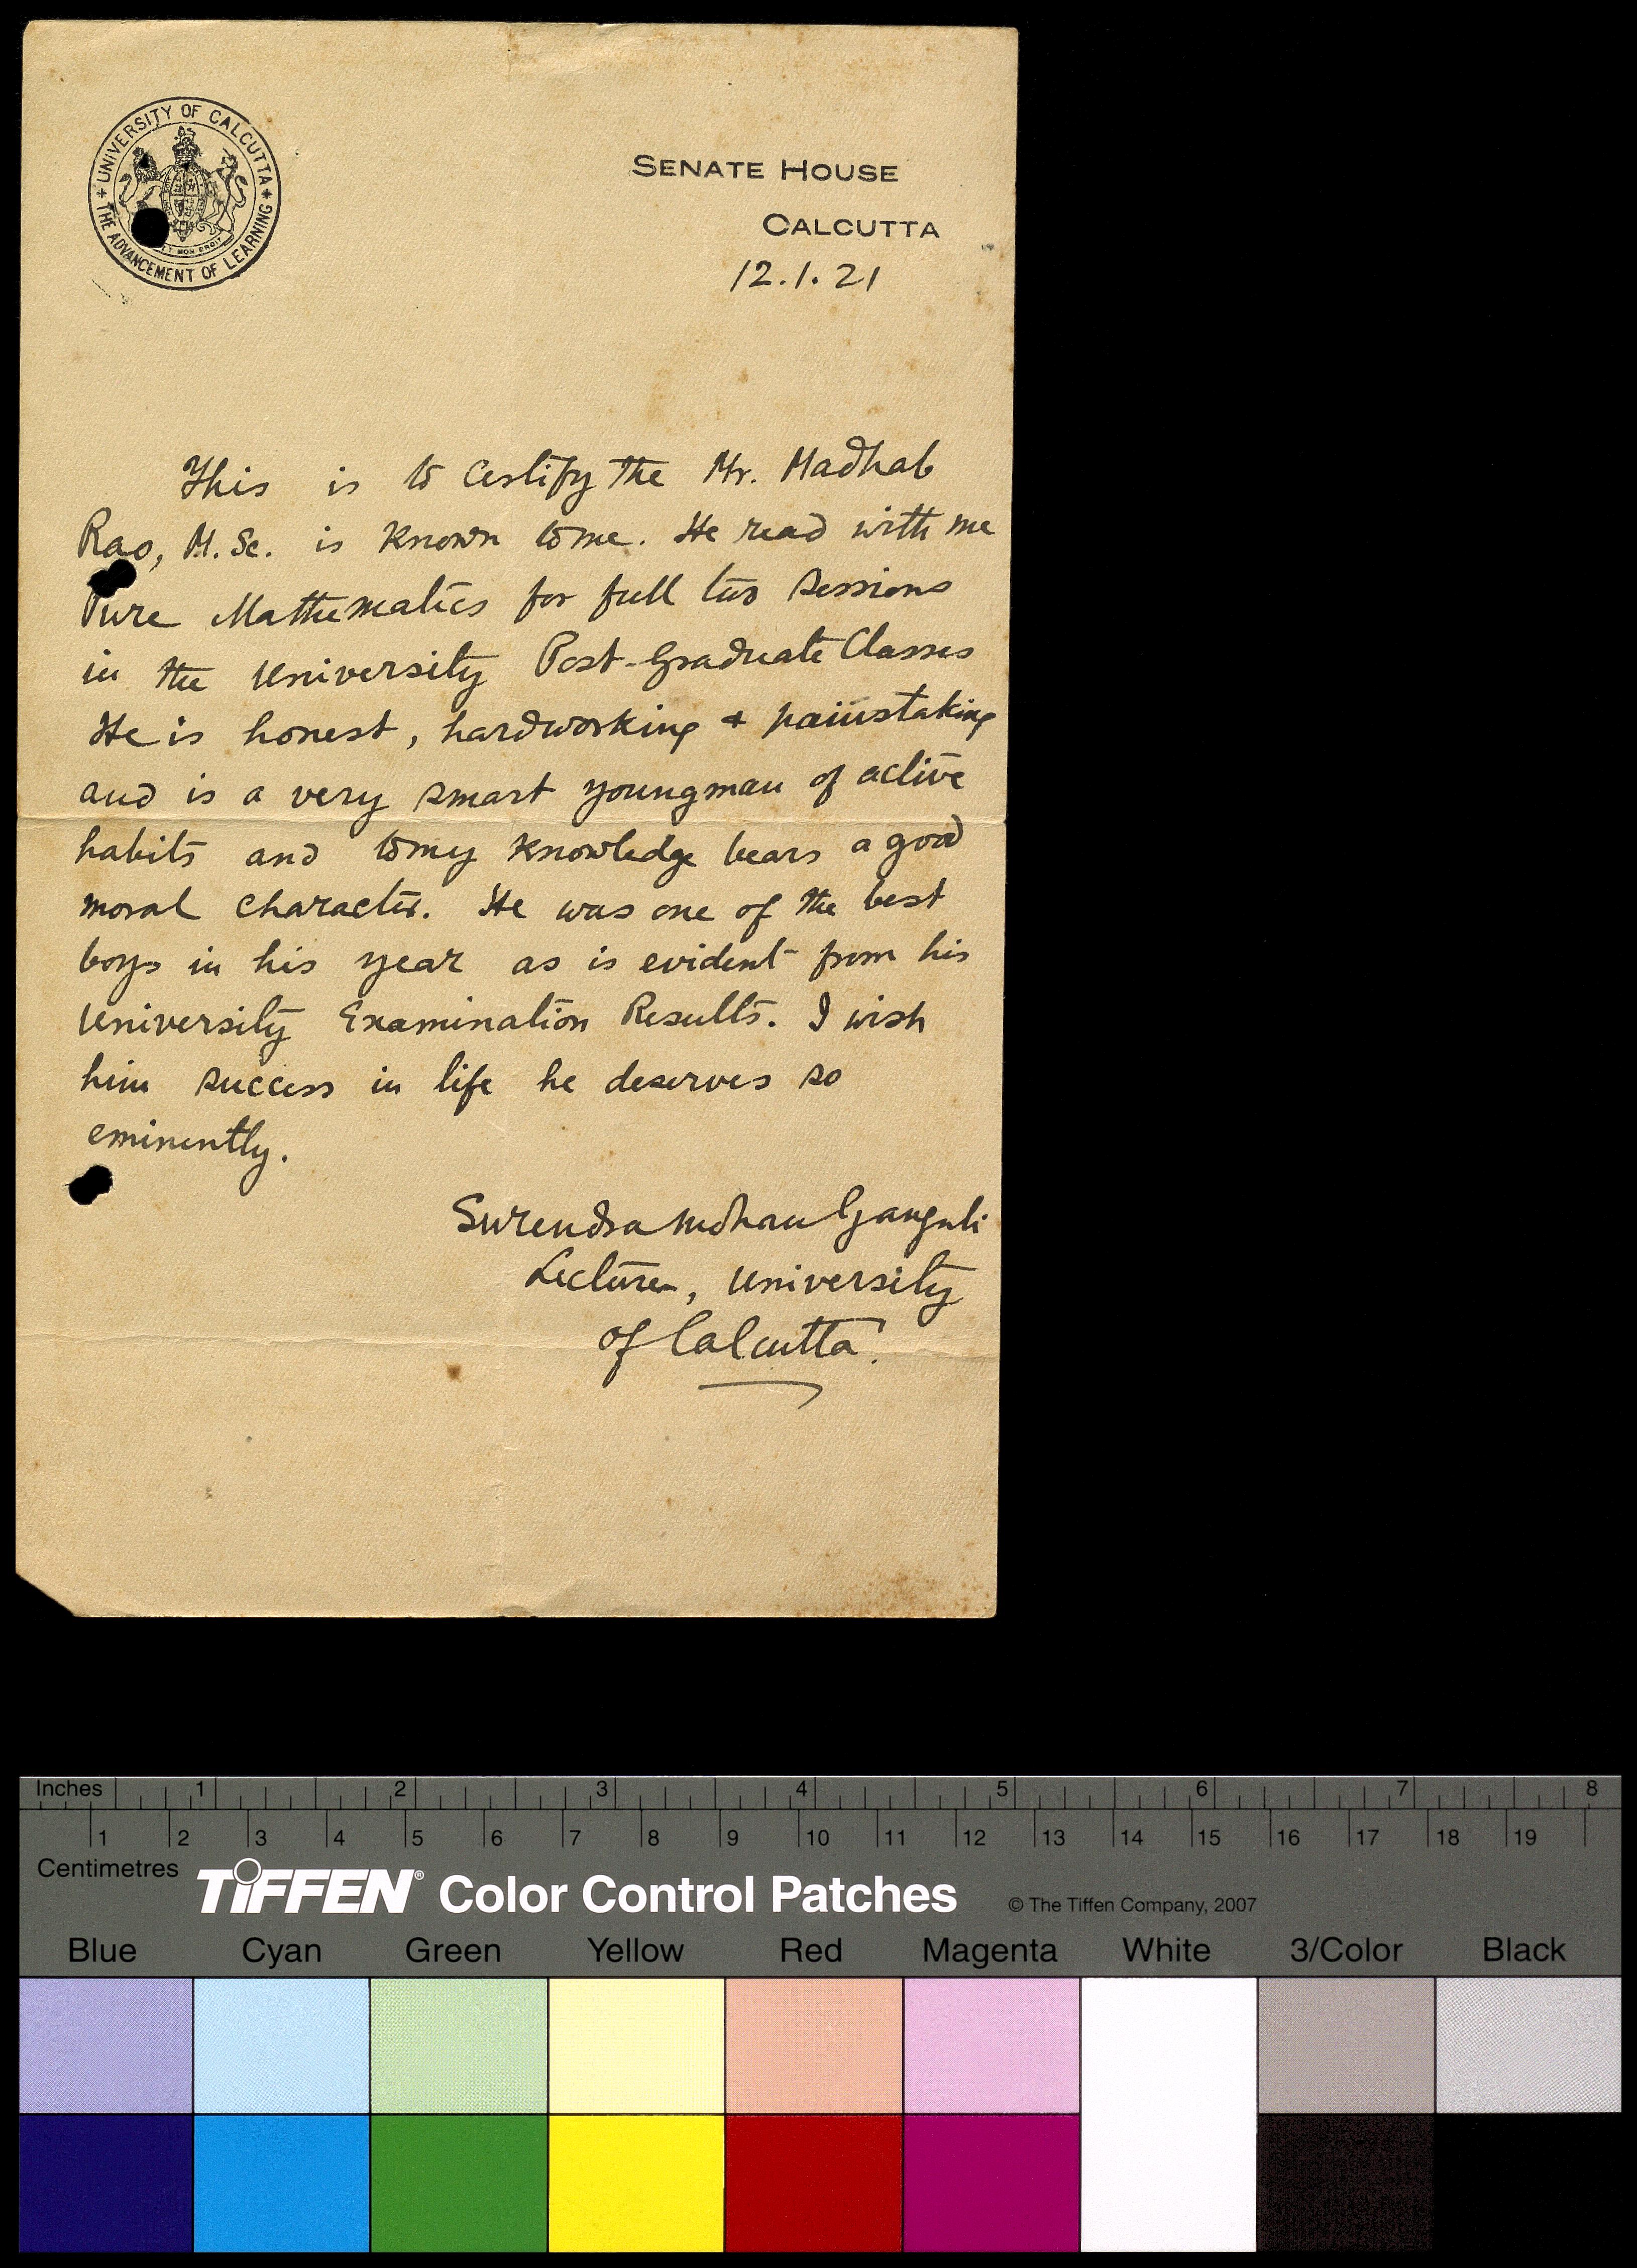 UNIVERSITY OF CALCUTTA
THE ADVANCEMENT OF LEARNING
ET MON DROIT
SENATE HOUSE
CALCUTTA
12.1.21
This is to certify the Mr. Madhab
Rao, M. Sc. is known to me. He read with me
Pure Mathematics for full two sessions
in the University Post-Graduate Classes
He is honest, hardworking & painstaking
and is a very smart youngman of active
habits and to my knowledge bears a good
moral character. He was one of the best
boys in his year as is evident from his
University Examination Results. I wish
him success in life he deserves so
eminently.
Surendra mohan Ganguli
Lecturer, University
of Calcutta.
Inches 1 2 3 4 5 6 7 8
1 2 3 4 5 6 7 8 9 10 11 12 13 14 15 16 17 18 19
Centimetres
TIFFEN® Color Control Patches © The Tiffen Company, 2007
Blue Cyan Green Yellow Red Magenta White 3/Color Black